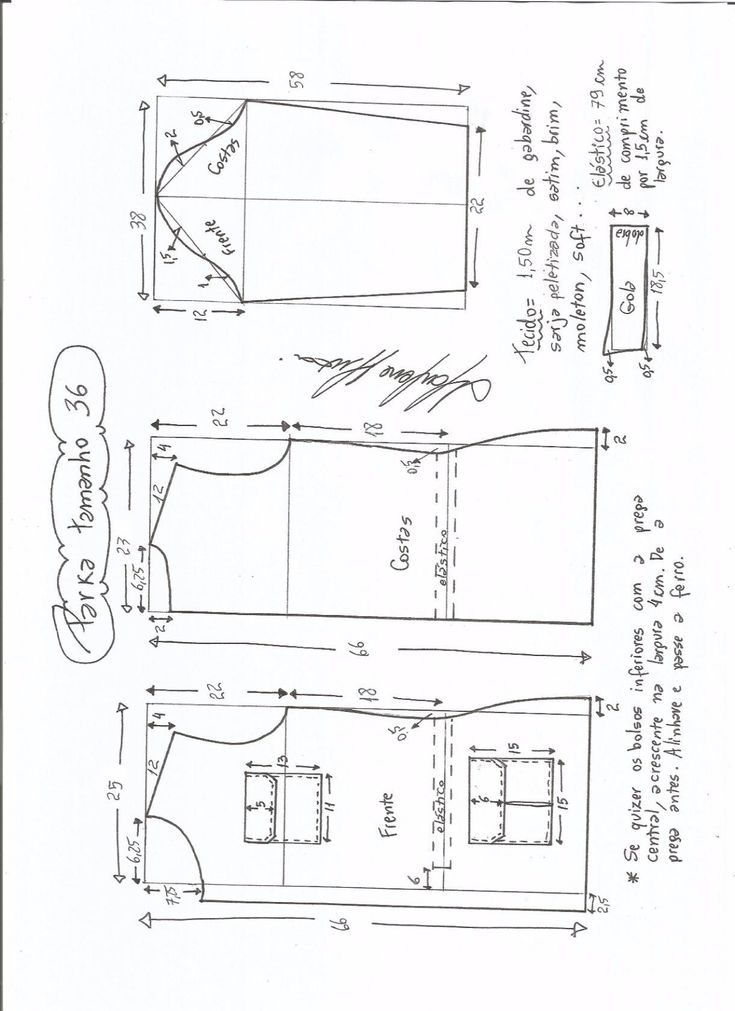 Parka tamanho 36
25
6,25
12
4
22
18
7,25
66
13
5
11
Frente
0,5
elástico
6
15
6
15
2
2,5
23
6,25
12
4
22
18
2
66
Costas
0,5
elástico
2
38
58
12
1,5
1
Frente
2
0,5
Costas
22
Tecido= 1,50m de gabardine,
sarja peletizada, satim, brim,
moleton, soft...
Elástico= 79 cm
de comprimento
por 1,5cm de
largura.
Gola
dobra
8
18,5
0,5
0,5
* Se quizer os bolsos inferiores com a prega
central, acrescente na largura 4cm. De a
prega antes. Alinhave e passe a ferro.